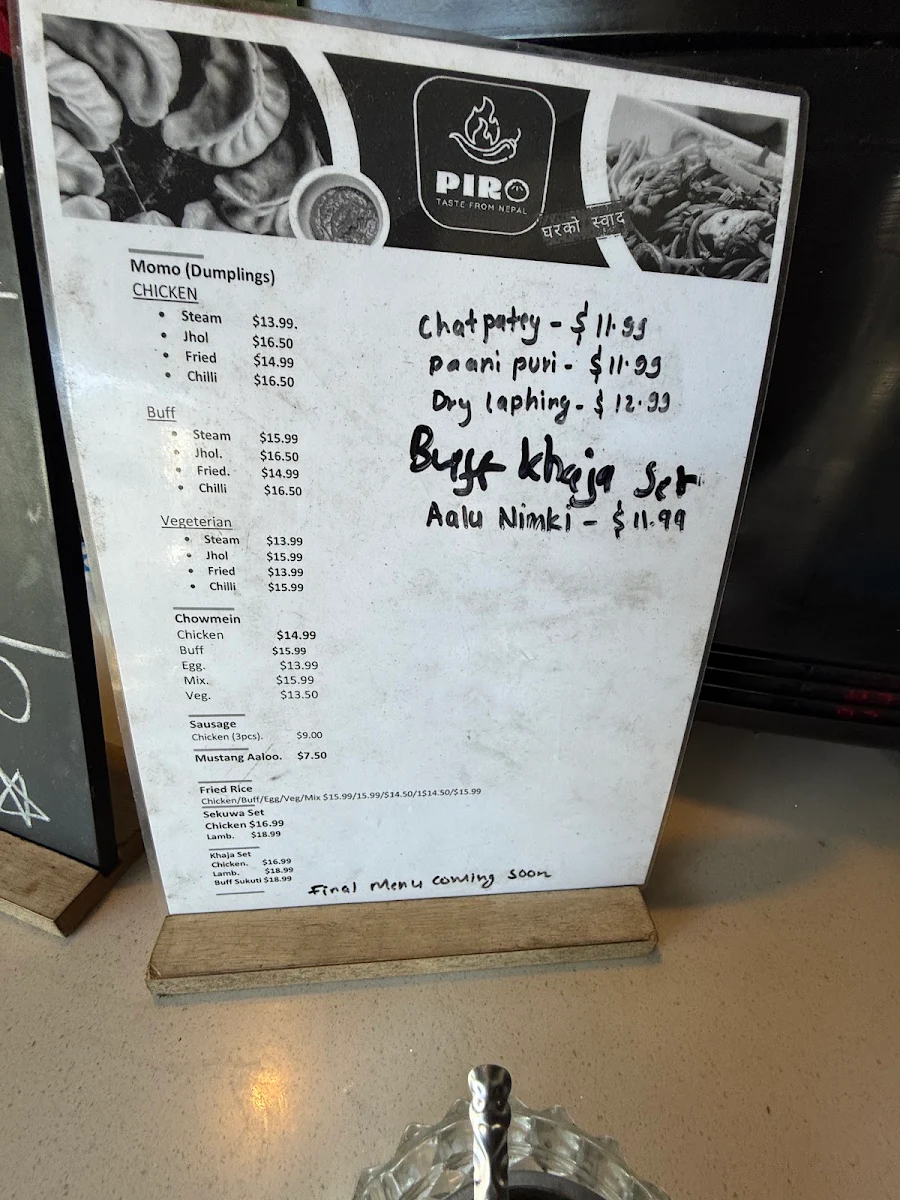 PIRO
TASTE FROM NEPAL
घरको स्वाद
Momo (Dumplings)
CHICKEN
• Steam $13.99.
• Jhol $16.50
• Fried $14.99
• Chilli $16.50
Buff
• Steam $15.99
• Jhol. $16.50
• Fried. $14.99
• Chilli $16.50
Vegeterian
• Steam $13.99
• Jhol $15.99
• Fried $13.99
• Chilli $15.99
Chowmein
Chicken $14.99
Buff $15.99
Egg. $13.99
Mix. $15.99
Veg. $13.50
Sausage
Chicken (3pcs). $9.00
Mustang Aaloo. $7.50
Fried Rice
Chicken/Buff/Egg/Veg/Mix $15.99/15.99/$14.50/1$14.50/$15.99
Sekuwa Set
Chicken $16.99
Lamb. $18.99
Khaja Set
Chicken. $16.99
Lamb. $18.99
Buff Sukuti $18.99
Chatpatey - $11.99
paani puri - $11.99
Dry laphing - $12.99
Buff khaja set
Aalu Nimki - $11.99
Final Menu coming soon